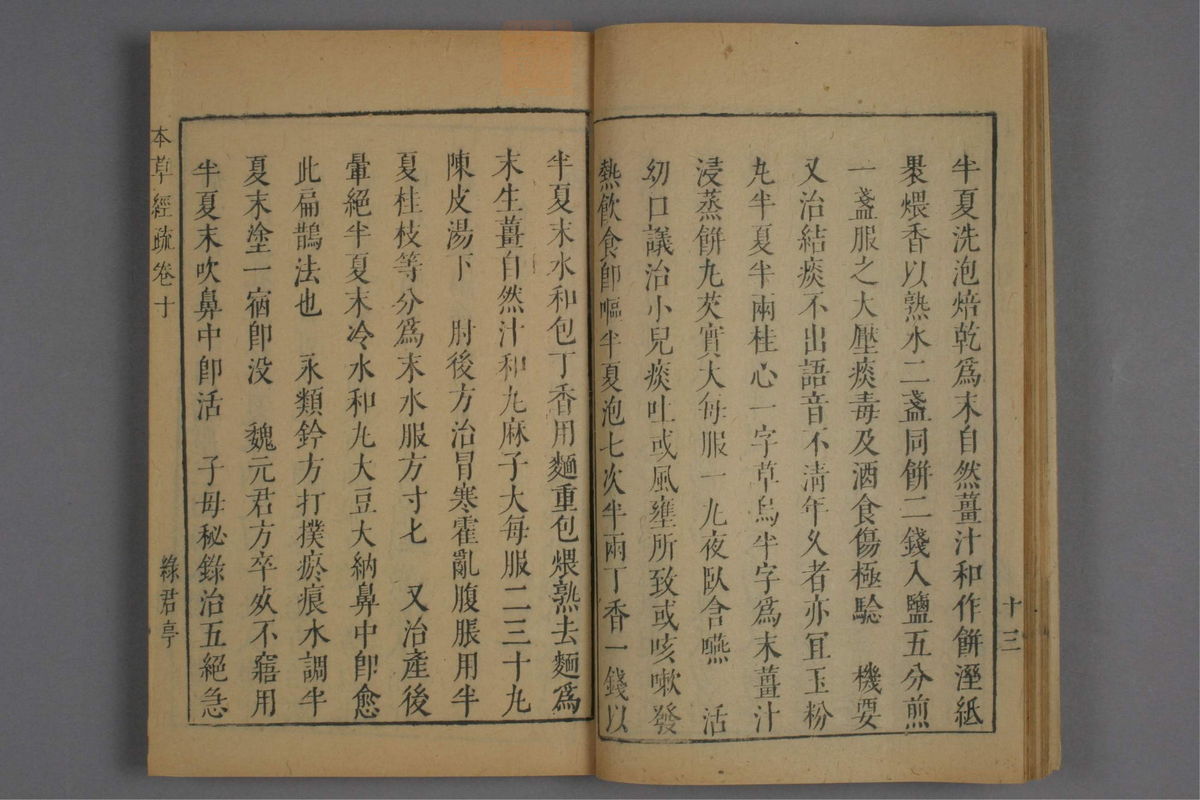 半夏洗泡焙乾爲末自然薑汁和作餅溼紙
裹煨香以熟水二盞同餅二錢入鹽五分煎
一盞服之大壓痰毒及酒食傷極驗　機要
又治結痰不出語音不清年久者亦宜玉粉
丸半夏半兩桂心一字草烏半字爲末薑汁
浸蒸餅丸芡實大每服一丸夜臥含嚥　活
幼口議治小兒痰吐或風壅所致或咳嗽發
熱飲食卽嘔半夏泡七次半兩丁香一錢以
十三
半夏末水和包丁香用麵重包煨熟去麵爲
末生薑自然汁和丸麻子大每服二三十丸
陳皮湯下　肘後方治冒寒霍亂腹脹用半
夏桂枝等分爲末水服方寸匕　又治產後
暈絕半夏末冷水和丸大豆大納鼻中卽愈
此扁鵲法也　永類鈐方打撲瘀痕水調半
夏末塗一宿卽没　魏元君方卒死不寤用
半夏末吹鼻中卽活　子母秘錄治五絕急
本草經疏卷十
綠君亭